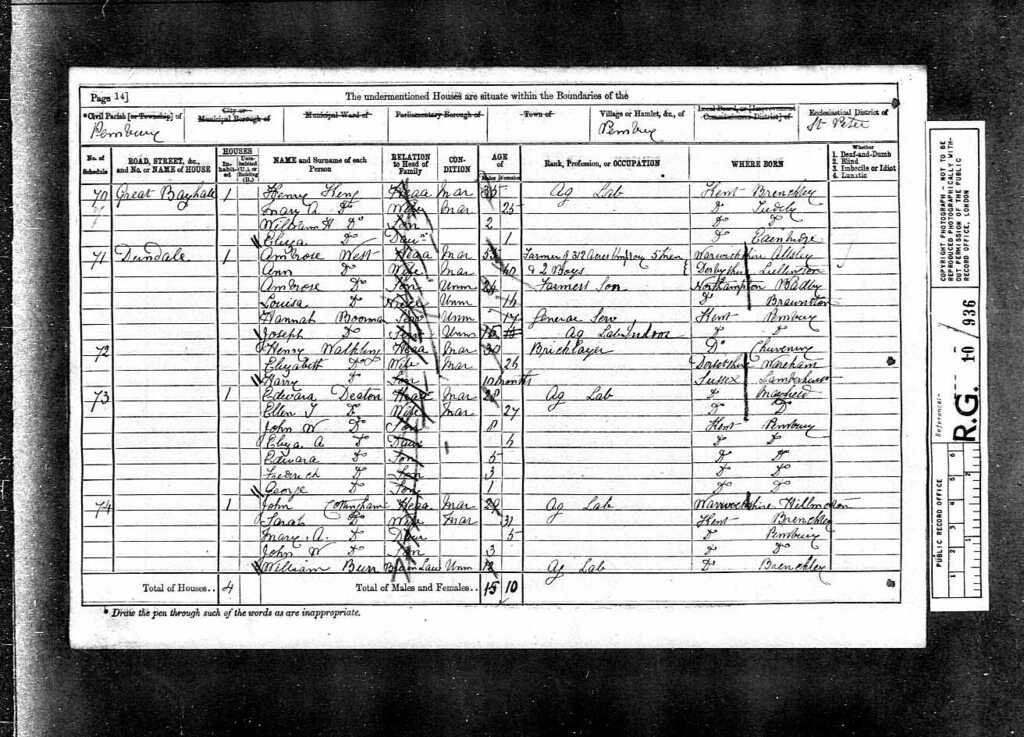 Page 14]
The undermentioned Houses are situate within the Boundaries of the
*Civil Parish [or Township] of
City or Municipal Borough of
Municipal Ward of
Parliamentary Borough of
Town of
Village or Hamlet, &c., of
Local Board, or [Improvement Commissioners District] of
Ecclesiastical District of
Pembury
Pembury
St Peter
No. of Schedule
ROAD, STREET, &c., and No. or NAME of HOUSE
HOUSES
Inhabited
Uninhabited (U.), or Building (B.)
NAME and Surname of each Person
RELATION to Head of Family
CONDITION
AGE of
Males
Females
Rank, Profession, or OCCUPATION
WHERE BORN
Whether
1. Deaf-and-Dumb
2. Blind
3. Imbecile or Idiot
4. Lunatic
70 Great Bayhall 1 Henry King Head Mar 35 Ag Lab Kent Brenchley
Mary A Do Wife Mar 25 Do Tudely
William H Do Son 2 Do Do
Eliza Do Daur 1 Do Edenbridge
71 Dundale 1 Ambrose West Head Mar Farmer of 312 Acres Employ 5 Men Warwickshire Allsley
Ann Do Wife Mar 40 & 2 Boys Derbyshire Lullington
Ambrose Do Son Unm 24 Farmers Son Northampton Badby
Louisa Do Niece Unm 16 Do Braunston
Hannah Booman Serv Unm 17 General Serv Kent Pembury
Joseph Do Serv Unm 15 Ag Lab Indoor Do Do
72 Henry Head Mar 30 Bricklayer Do Chevening
Elizabeth Do Wife Mar 26 Dorsetshire Wareham
Harry Do Son 10 months Sussex Lamberhurst
73 1 Edward Deaton Head Mar 28 Ag Lab Do Mayfield
Ellen J Do Wife Mar 27 Do Do
John W Do Son 8 Kent Pembury
Eliza A Do Daur 6 Do Do
Edward Do Son 5 Do Do
Frederick Do Son 3 Do Do
George Do Son 1 Do Do
74 1 John Cottingham Head Mar 29 Ag Lab Warwickshire
Sarah Do Wife Mar 31 Kent Brenchley
Mary A. Do Daur 5 Do Pembury
John W Do Son 3 Do Do
William Unm Ag Lab Do Brenchley
Total of Houses.. 4
Total of Males and Females.. 15 10
* Draw the pen through such of the words as are inappropriate.
COPYRIGHT PHOTOGRAPH - NOT TO BE REPRODUCED PHOTOGRAPHICALLY WITHOUT PERMISSION OF THE PUBLIC RECORD OFFICE, LONDON
Reference:-
R.G. 10 / 936
PUBLIC RECORD OFFICE
1 2 3 4 5 6